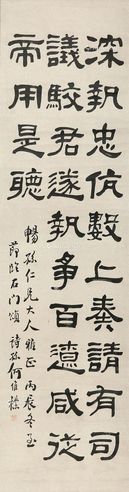 深執忠伉數上奏請有司
議駮君遂執爭百遼咸從
帝用是聽
暢孫仁兄大人雅正丙辰冬至
節臨石门頌詩孫何維樸